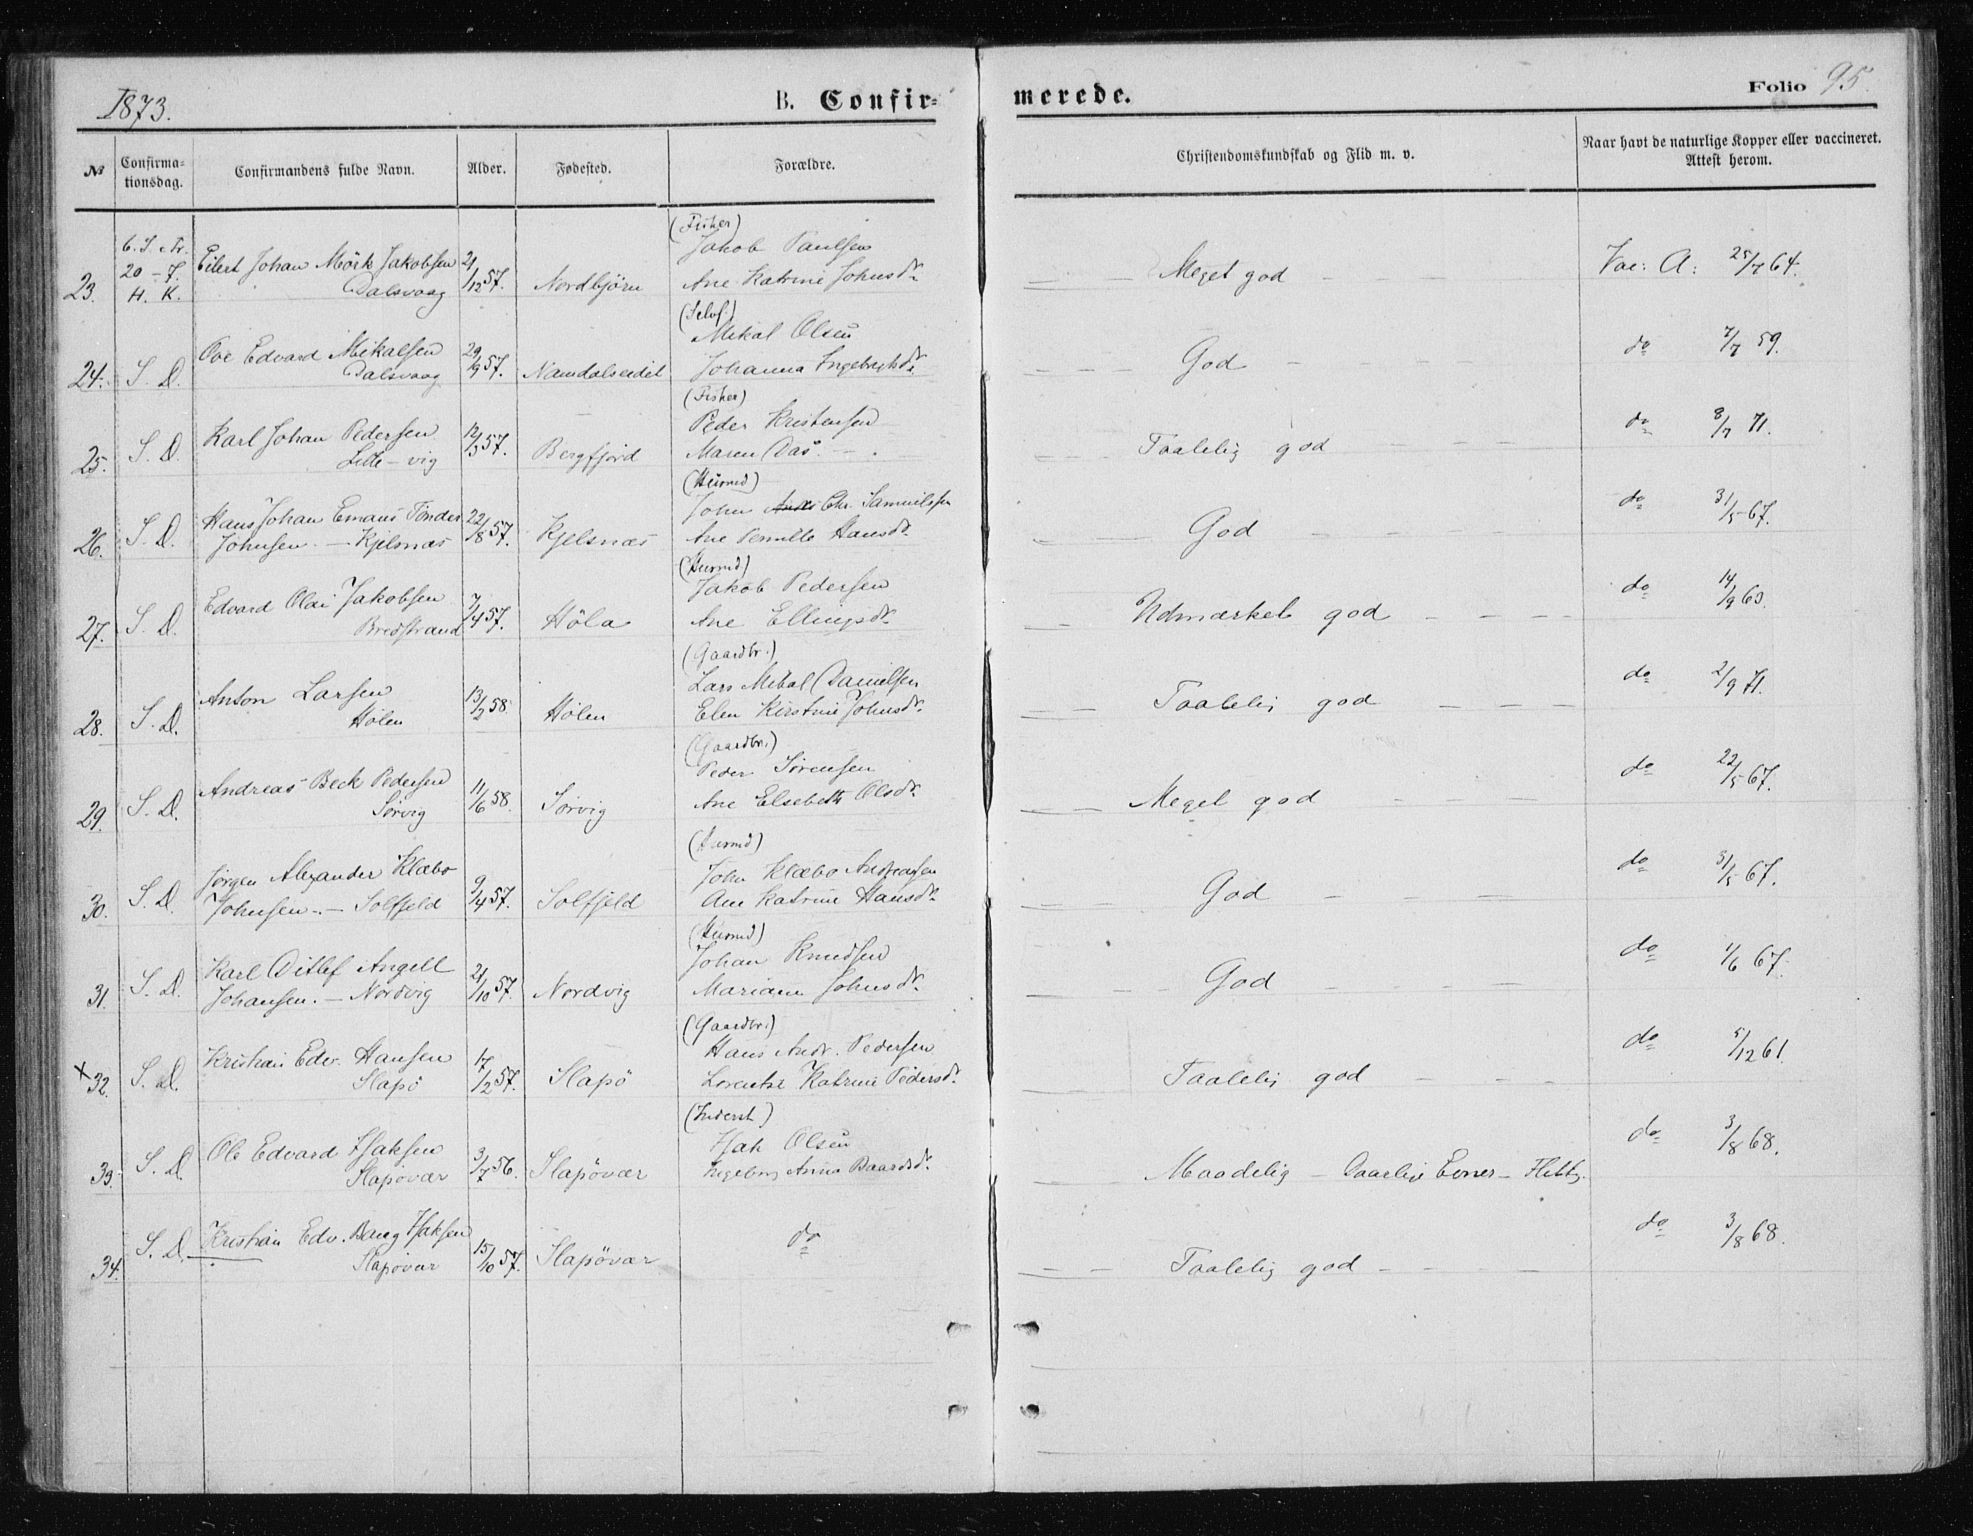 1873.
B. Confir-
merede.
Folio 95.
№
Confirma-
tionsdag.
Confirmandens fulde Navn.
Alder.
Fødested.
Forældre.
Christendomskundskab og Flid m. v.
Naar havt de naturlige Kopper eller vaccineret.
Attest herom.
(Fisker)
6. S. e. Tr. Eilert Johan Mörk Jakobsen 21/12 57. Jakob Paulsen
23. 20 - 7. H. K. Dalsvaag Nordbjörn Ane Katrine Johnsdr. — — Meget god — — — Vac: A: 25/7 64.
(Selvf.)
Ove Edvard Mikalsen 29/9 57. Mikal Olsen
24. S. D. Dalsvaag Namdalseidet Johanna Ingebregtsdr. — — God — — — do 7/7 59.
(Fisker)
Karl Johan Pedersen 12/3 57. Peder Kristensen
25. S. D. Lille-vig Bergfjord Maren Das. — — Taalelig god — — — do 8/7 71.
(Huusmd)
Hans Johan Emaus Tönder 22/8 57. John Chr. Samuelsen
26. S. D. Johnsen. — Kjelsnæs Kjelsnæs Ane Pernille Hansdr. — — God — — — do 31/5 67.
(Huusmd)
Edvard Olai Jakobsen 7/4 57. Jakob Pedersen
27. S. D. Bredstrand Höla Ane Ellingsdr. — — Udmærket god — — — do 14/9 63.
(Gaardbr.)
Anton Larsen 13/2 58. Lars Mikal Danielsen
28. S. D. Hölen Hölen Elen Kirstine Johnsdr. — — Taalelig god — — — do 2/9 71.
(Gaardbr.)
Andreas Beck Pedersen 11/6 58. Peder Sörensen
29. S. D. Sörvig Sörvig Ane Elsebeth Olsdr. — — Meget god — — — do 22/5 67.
(Huusmd)
Jörgen Alexander Klæbo 9/4 57. John Klæbo Andreasen
30. S. D. Johnsen. — Solfjeld Solfjeld Ane Katrine Hansdr. — — God — — — do 31/5 67.
(Huusmd)
Karl Ditlef Angell 21/10 57. Johan Knudsen
31. S. D. Johansen. — Nordvig Nordvig Mariane Johnsdr. — — God — — — do 1/6 67.
(Gaardbr.)
Kristian Edv. Hansen 17/2 57. Hans Andr. Pedersen
× 32. S. D. Slapö Slapö Lorentze Katrine Pedersdr. Taalelig god — — — do 5/12 61.
(Inderst)
Ole Edvard Isaksen 3/7 56. Isak Olsen
33. S. D. Slapövær Slapövær Ingeborg Anna Baardsdr. Maadelig — Daarlige Evner — Flittig. do 3/8 68.
Kristian Edv. Bang Isaksen 15/10 57. do
34. S. D. Slapövær Slapövær — — Taalelig god — — — do 3/8 68.